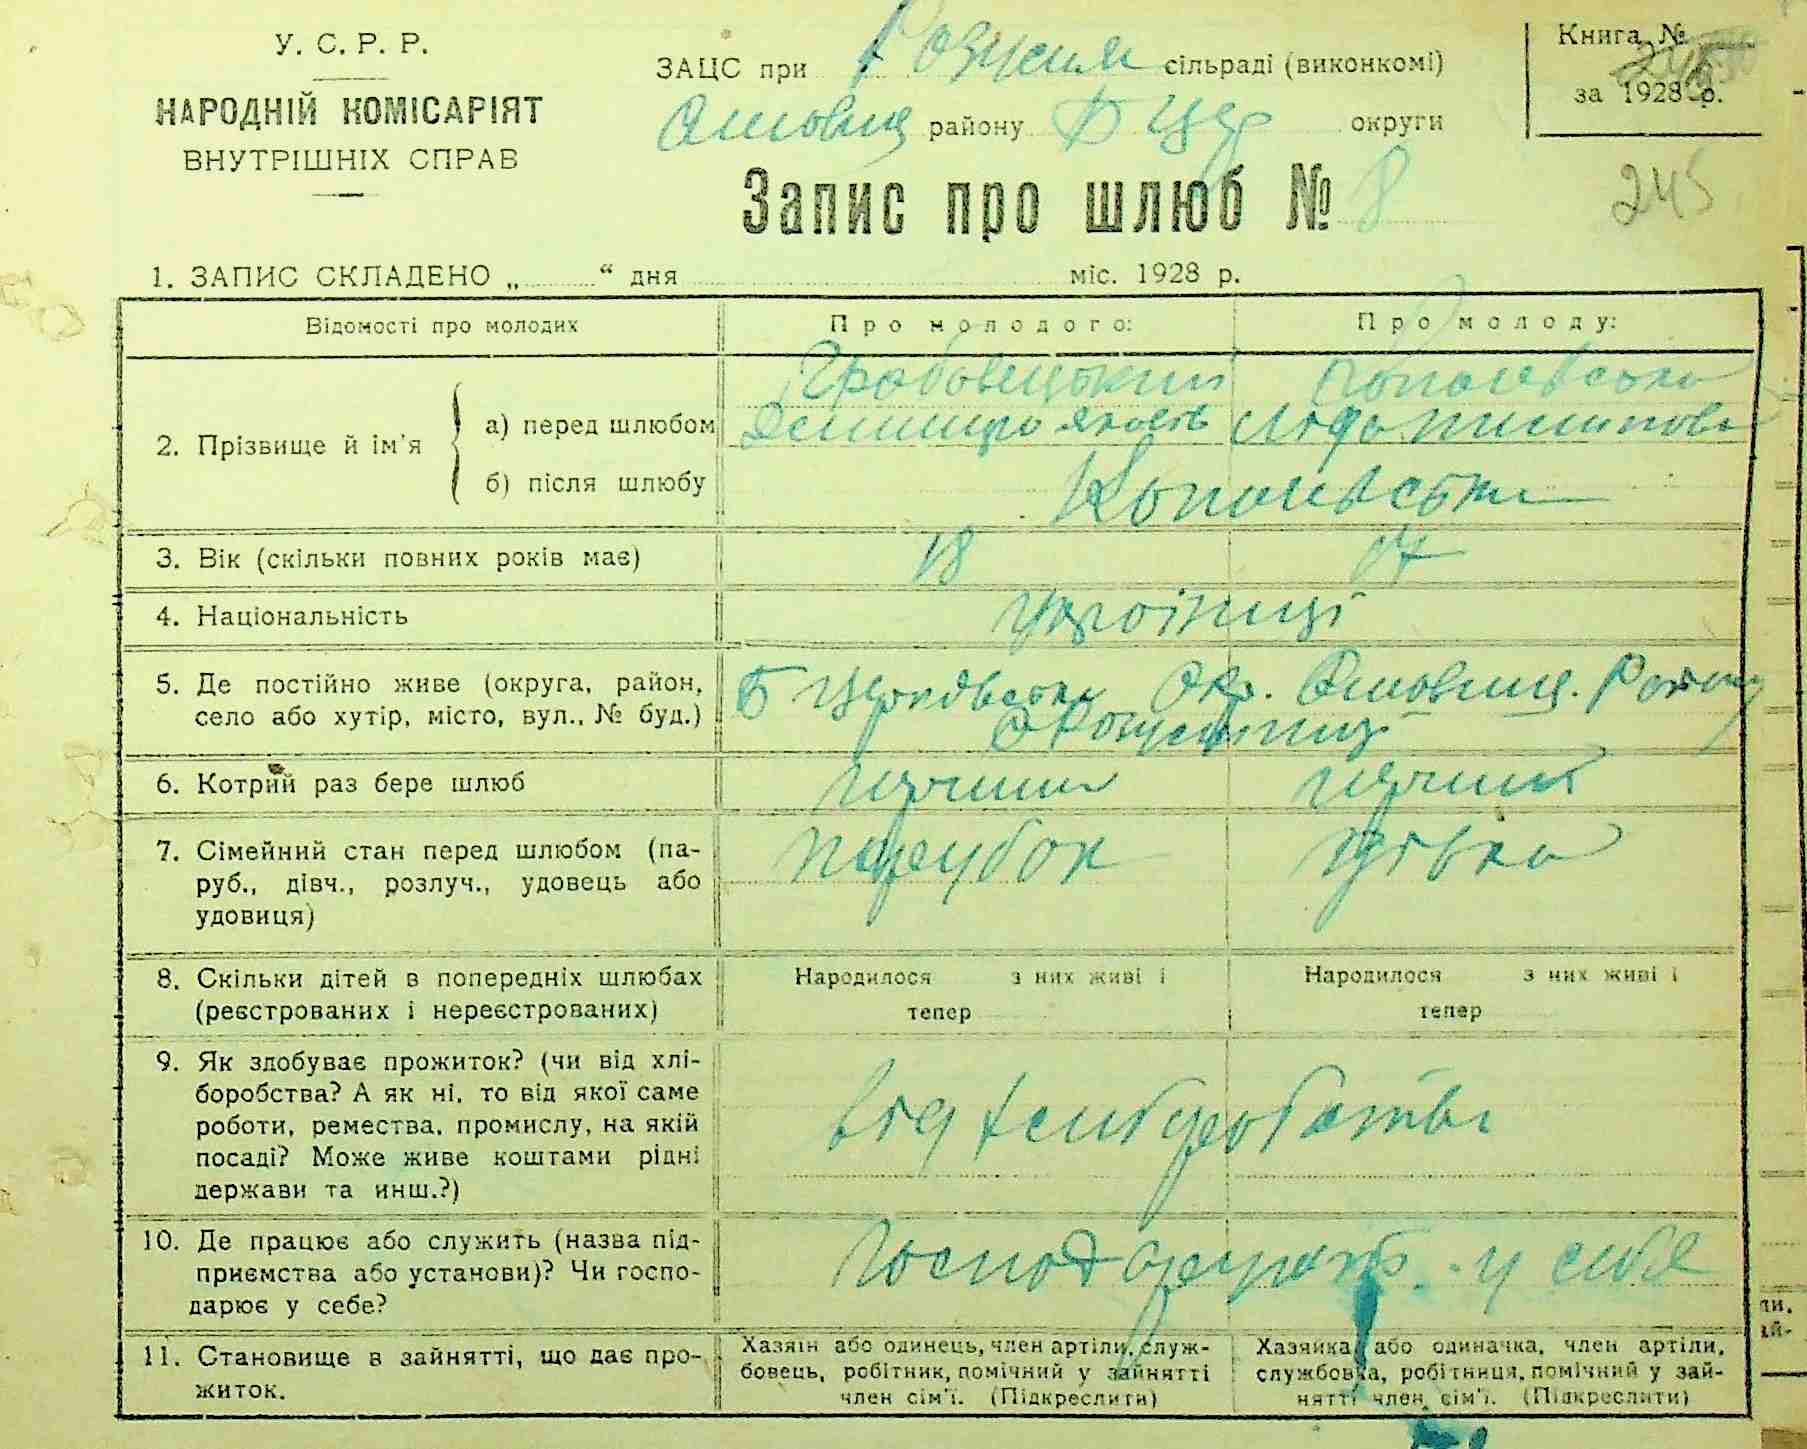 У. С. Р. Р.
НАРОДНІЙ КОМІСАРІЯТ
ВНУТРІШНІХ СПРАВ
ЗАЦС при сільраді (виконкомі)
району Б Цер округи
Книга №
за 1928 р.
245
Запис про шлюб № 8
1. ЗАПИС СКЛАДЕНО „ “ дня міс. 1928 р.
Відомості про молодих
Про молодого:
Про молоду:
2. Прізвище й ім'я
а) перед шлюбом
Грабовецький
б) після шлюбу
3. Вік (скільки повних років має)
18
17
4. Національність
Українці
5. Де постійно живе (округа, район,
село або хутір, місто, вул., № буд.)
Б Церківська Окр.
6. Котрий раз бере шлюб
перший
перший
7. Сімейний стан перед шлюбом (па-
руб., дівч., розлуч., удовець або
удовиця)
парубок
дівка
8. Скільки дітей в попередніх шлюбах
(реєстрованих і нереєстрованих)
Народилося з них живі і
тепер
Народилося з них живі і
тепер
9. Як здобуває прожиток? (чи від хлі-
боробства? А як ні, то від якої саме
роботи, ремества, промислу, на якій
посаді? Може живе коштами рідні
держави та инш.?)
від
10. Де працює або служить (назва під-
приємства або установи)? Чи госпо-
дарює у себе?
Господарують у себе
11. Становище в зайнятті, що дає про-
житок.
Хазяін або одинець, член артіли, служ-
бовець, робітник, помічний у зайнятті
член сім'ї. (Підкреслити)
Хазяйка або одиначка, член артіли,
службовка, робітниця, помічний у зай-
нятті член сім'ї. (Підкреслити)